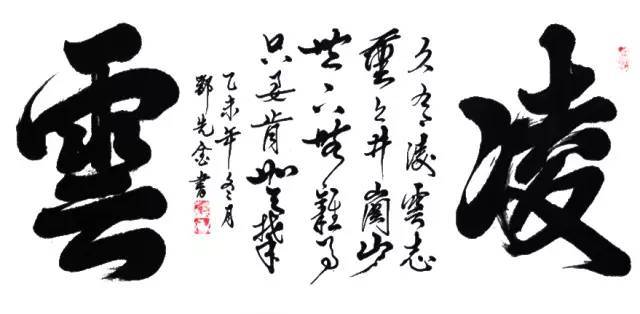 凌
久有凌雲志
重上井崗山
世上無難事
只要肯登攀
乙未年冬月
鄧先金書
雲